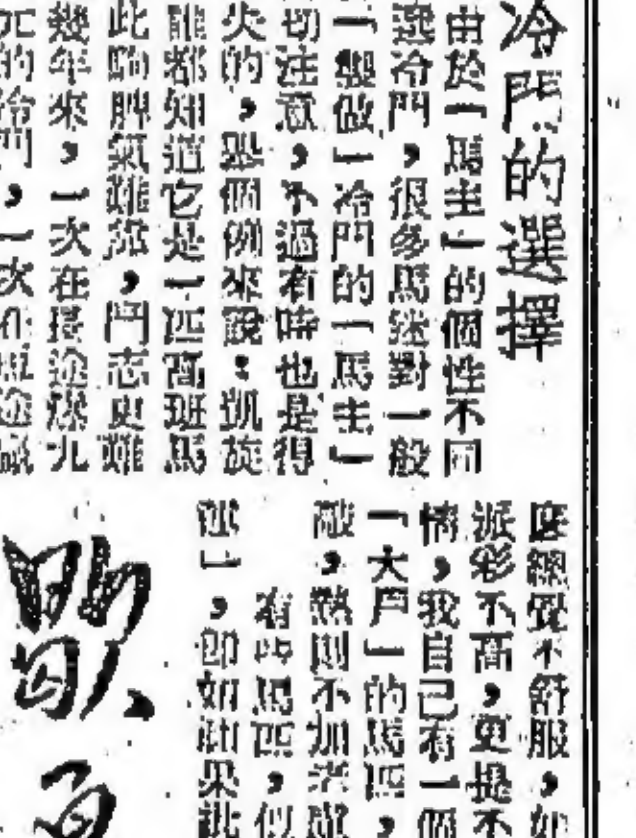 冷門的選擇
由於「馬主」的個性不同
選冷門，很多馬迷對一般
「製做」冷門的「馬主」
切注意，不過有時也是得
失的，舉個例來說：凱旋
誰都知道它是一匹高班馬
此駒脾氣難，鬥志更難
幾年來，一次在長途爆九
元的冷門，一次在短途
度總覺不舒服，如
派彩不高，更提不
情，我自己有一個
「大戶」的馬匹，
敵，熱則不加考慮
有時馬匹，似
」，即如此果